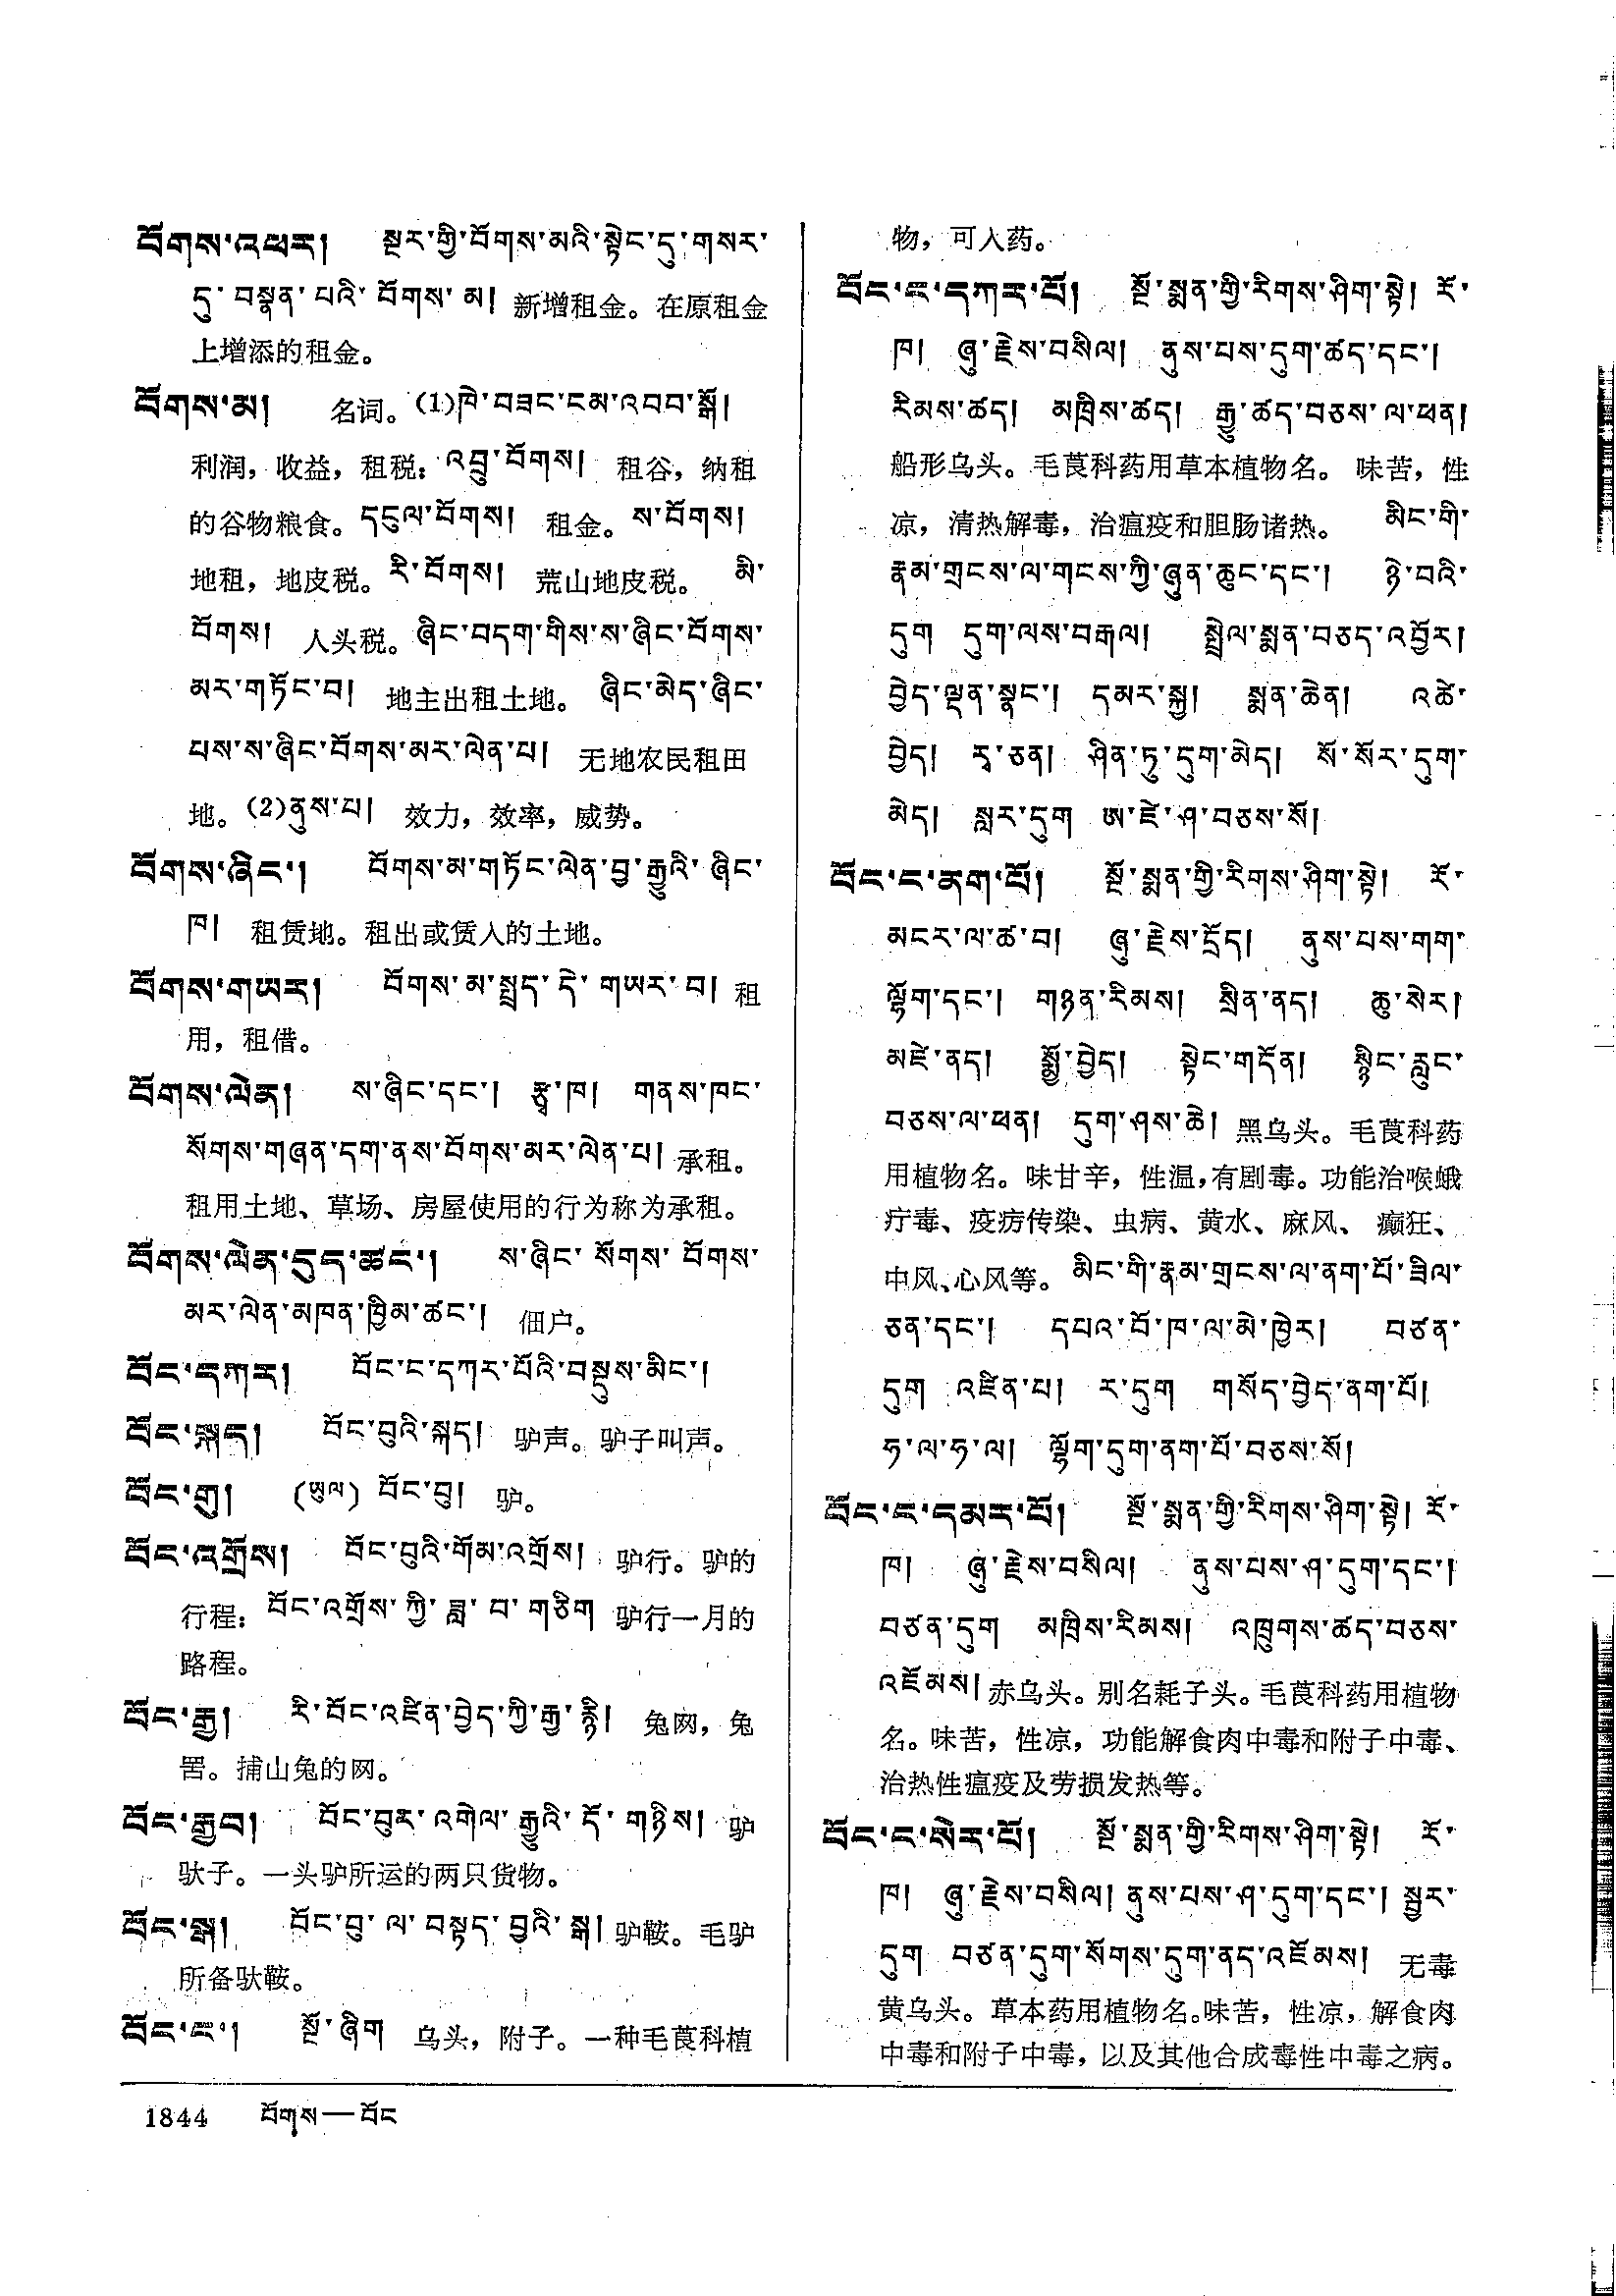 བོགས་འཕར། སྔར་གྱི་བོགས་མའི་སྟེང་དུ་གསར་
དུ་བསྣན་པའི་བོགས་མ། 新增租金。在原租金
上增添的租金。
བོགས་མ། 名词。(1)ཁེ་བཟང་ངམ་འབབ་སྒོ།
利润，收益，租税：འབྲུ་བོགས། 租谷，纳租
的谷物粮食。དངུལ་བོགས། 租金。ས་བོགས།
地租，地皮税。རི་བོགས། 荒山地皮税。 མི་
བོགས། 人头税。ཞིང་བདག་གིས་ས་ཞིང་བོགས་
མར་གཏོང་བ། 地主出租土地。 ཞིང་མེད་ཞིང་
པས་ས་ཞིང་བོགས་མར་ལེན་པ། 无地农民租田
地。(2)ནུས་པ། 效力，效率，威势。
བོགས་ཞིང་། བོགས་མ་གཏོང་ལེན་བྱ་རྒྱུའི་ཞིང་
ཁ། 租赁地。租出或赁入的土地。
བོགས་གཡར། བོགས་མ་སྤྲད་དེ་གཡར་བ། 租
用，租借。
བོགས་ལེན། ས་ཞིང་དང་། རྩྭ་ཁ། གནས་ཁང་
སོགས་གཞན་དག་ནས་བོགས་མར་ལེན་པ། 承租。
租用土地、草场、房屋使用的行为称为承租。
བོགས་ལེན་དུད་ཚང་། ས་ཞིང་སོགས་བོགས་
མར་ལེན་མཁན་ཁྱིམ་ཚང་། 佃户。
བོང་དཀར། བོང་ང་དཀར་པོའི་བསྡུས་མིང་།
བོང་སྐད། བོང་བུའི་སྐད། 驴声。驴子叫声。
བོང་གུ། (ཡུལ) བོང་བུ། 驴。
བོང་འགྲོས། བོང་བུའི་གོམ་འགྲོས། 驴行。驴的
行程：བོང་འགྲོས་ཀྱི་ཟླ་བ་གཅིག 驴行一月的
路程。
བོང་རྒྱ། རི་བོང་འཛིན་བྱེད་ཀྱི་རྒྱ་རྙི། 兔网，兔
罟。捕山兔的网。
བོང་རྒྱབ། བོང་བུར་འགེལ་རྒྱུའི་དོ་གཉིས། 驴
驮子。一头驴所运的两只货物。
བོང་སྒ། བོང་བུ་ལ་བསྟད་བྱའི་སྒ། 驴鞍。毛驴
所备驮鞍。
བོང་ང་། སྔོ་ཞིག 乌头，附子。一种毛茛科植
物，可入药。
བོང་ང་དཀར་པོ། སྔོ་སྨན་གྱི་རིགས་ཤིག་སྟེ། རོ་
ཁ། ཞུ་རྗེས་བསིལ། ནུས་པས་དུག་ཚད་དང་།
རིམས་ཚད། མཁྲིས་ཚད། རྒྱུ་ཚད་བཅས་ལ་ཕན།
船形乌头。毛茛科药用草本植物名。 味苦，性
凉，清热解毒，治瘟疫和胆肠诸热。 མིང་གི་
རྣམ་གྲངས་ལ་གངས་ཀྱི་ཞུན་ཆུང་དང་། ཉེ་བའི་
དུག དུག་ལས་བརྒལ། སྤྲེལ་སྨན་བཅད་འབྱོར།
བྱེད་ལྡན་སྣང་། དམར་སྐྱ། སྨན་ཆེན། འཚེ་
བྱེད། རྭ་ཅན། ཤིན་ཏུ་དུག་མེད། སོ་སོར་དུག་
མེད། སླར་དུག ཨ་ཛེ་ཤ་བཅས་སོ།
བོང་ང་ནག་པོ། སྔོ་སྨན་གྱི་རིགས་ཤིག་སྟེ། རོ་
མངར་ལ་ཚ་བ། ཞུ་རྗེས་དྲོད། ནུས་པས་གག་
ལྷོག་དང་། གཉན་རིམས། སྲིན་ནད། ཆུ་སེར།
མཛེ་ནད། སྨྱོ་བྱེད། སྟེང་གདོན། སྙིང་རླུང་
བཅས་ལ་ཕན། དུག་ཤས་ཆེ། 黑乌头。毛茛科药
用植物名。味甘辛，性温，有剧毒。功能治喉蛾
疔毒、疫疠传染、虫病、黄水、麻风、 癫狂、
中风、心风等。 མིང་གི་རྣམ་གྲངས་ལ་ནག་པོ་ཟིལ་
ཅན་དང་། དཔའ་བོ་ཁ་ལ་མེ་ཁྱེར། བཙན་
དུག འཛིན་པ། ར་དུག གསོད་བྱེད་ནག་པོ།
ཧ་ལ་ཧ་ལ། ལྷོག་དུག་ནག་པོ་བཅས་སོ།
བོང་ང་དམར་པོ། སྔོ་སྨན་གྱི་རིགས་ཤིག་སྟེ། རོ་
ཁ། ཞུ་རྗེས་བསིལ། ནུས་པས་ཤ་དུག་དང་།
བཙན་དུག མཁྲིས་རིམས། འཁྲུགས་ཚད་བཅས་
འཇོམས། 赤乌头。别名耗子头。毛茛科药用植物
名。味苦，性凉，功能解食肉中毒和附子中毒、
治热性瘟疫及劳损发热等。
བོང་ང་སེར་པོ། སྔོ་སྨན་གྱི་རིགས་ཤིག་སྟེ། རོ་
ཁ། ཞུ་རྗེས་བསིལ། ནུས་པས་ཤ་དུག་དང་། སྦྱར་
དུག བཙན་དུག་སོགས་དུག་ནད་འཇོམས། 无毒
黄乌头。草本药用植物名。味苦，性凉，解食肉
中毒和附子中毒，以及其他合成毒性中毒之病。
1844 བོགས—བོང